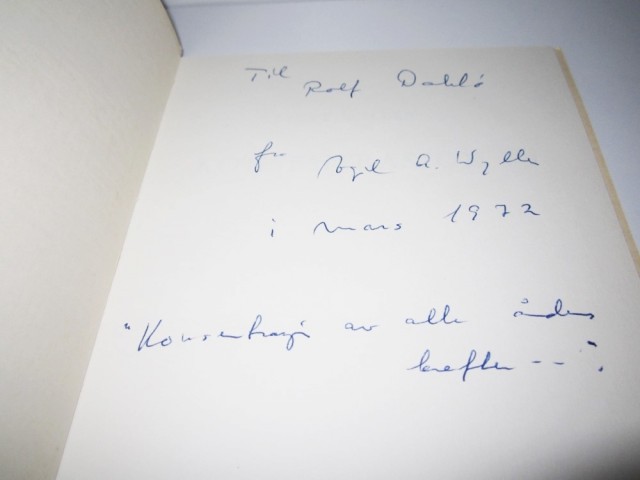 Til
Rolf Dahlø
fr Egil A. Wyller
i mars 1972
"Konsentrasjon av alle åndens
krefter -- ".